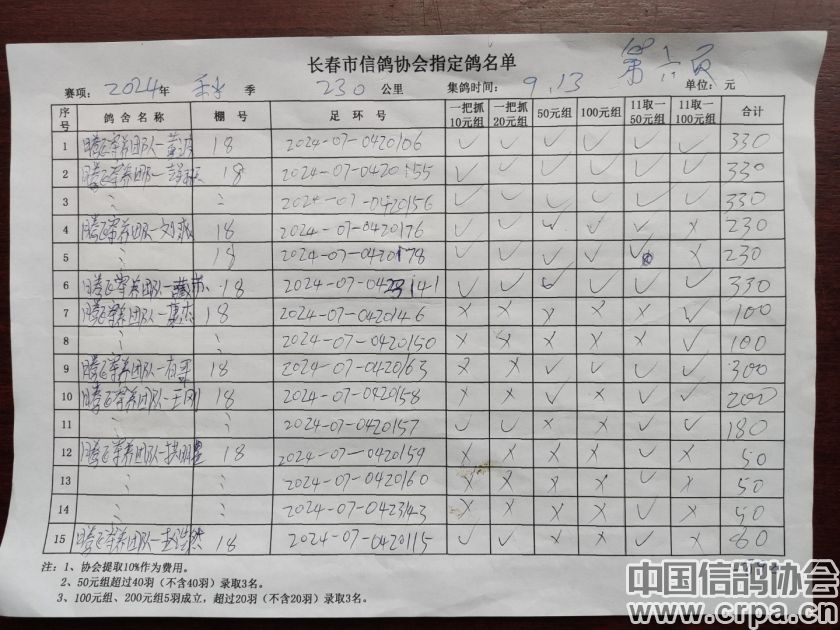 长春市信鸽协会指定鸽名单
第六页
赛项: 2024年 秋 季 230 公里 集鸽时间: 9.13 单位: 元
序号 鸽舍名称 棚号 足环号 一把抓10元组 一把抓20元组 50元组 100元组 11取一50元组 11取一100元组 合计
1 腾飞寄养团队一 18 2024-07-0420106 ✓ ✓ ✓ ✓ ✓ ✓ 330
2 腾飞寄养团队一 18 2024-07-0420155 ✓ ✓ ✓ ✓ ✓ ✓ 330
3 〃 〃 2024-07-0420156 ✓ ✓ ✓ ✓ ✓ ✓ 330
4 腾飞寄养团队一 18 2024-07-0420176 ✓ ✓ ✓ ✓ ✓ × 230
5 〃 18 2024-07-0420178 ✓ ✓ ✓ ✓ ✓ × 230
6 腾飞寄养团队一 18 2024-07-0423141 ✓ ✓ ✓ ✓ ✓ ✓ 330
7 腾飞寄养团队一 18 2024-07-0420146 × × × × × ✓ 100
8 〃 〃 2024-07-0420150 × × × × × ✓ 100
9 腾飞寄养团队一 18 2024-07-0420163 × × ✓ ✓ ✓ ✓ 300
10 腾飞寄养团队一王刚 18 2024-07-0420158 × × ✓ × ✓ ✓ 200
11 〃 〃 2024-07-0420157 ✓ ✓ × × ✓ ✓ 180
12 腾飞寄养团队一 18 2024-07-0420159 × × × × ✓ × 50
13 〃 〃 2024-07-0420160 × × × × ✓ × 50
14 〃 〃 2024-07-0423143 × × × × ✓ × 50
15 腾飞寄养团队一 18 2024-07-0420115 ✓ ✓ × × ✓ × 80
注: 1、协会提取10%作为费用。
2、50元组超过40羽(不含40羽)录取3名。
3、100元组、200元组5羽成立,超过20羽(不含20羽)录取3名。
中国信鸽协会
www.crpa.cn